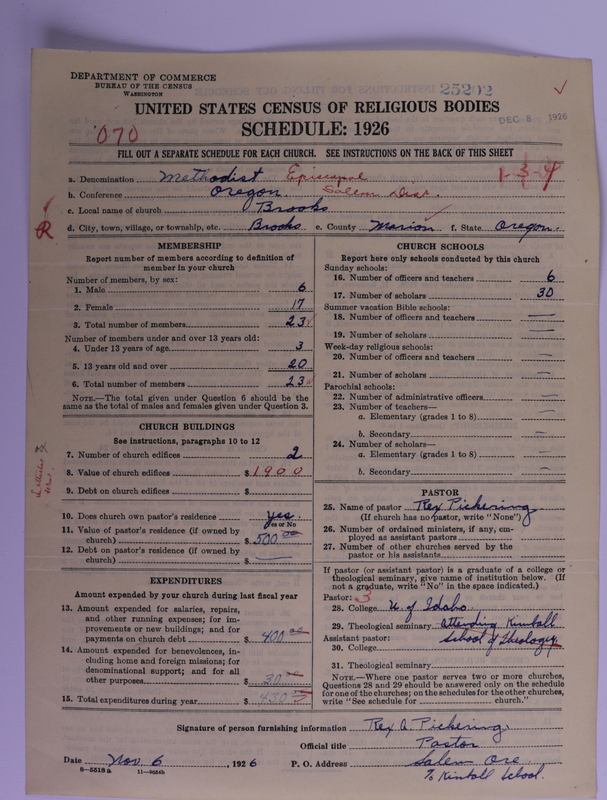 DEPARTMENT OF COMMERCE
BUREAU OF THE CENSUS
WASHINGTON
25202
DEC 8 1926
UNITED STATES CENSUS OF RELIGIOUS BODIES
SCHEDULE: 1926
070
FILL OUT A SEPARATE SCHEDULE FOR EACH CHURCH. SEE INSTRUCTIONS ON THE BACK OF THIS SHEET
a. Denomination Methodist Episcopal
b. Conference Oregon. Salem Dist.
c. Local name of church Brooks
d. City, town, village, or township, etc. Brooks e. County Marion f. State Oregon.
R
MEMBERSHIP
Report number of members according to definition of member in your church
Number of members, by sex:
1. Male 6
2. Female 17
3. Total number of members 23
Number of members under and over 13 years old:
4. Under 13 years of age 3
5. 13 years old and over 20
6. Total number of members 23
NOTE.—The total given under Question 6 should be the same as the total of males and females given under Question 3.
CHURCH BUILDINGS
See instructions, paragraphs 10 to 12
7. Number of church edifices 2
8. Value of church edifices $ 1900
9. Debt on church edifices $
10. Does church own pastor's residence yes.
Yes or No
11. Value of pastor's residence (if owned by church) $ 500.00
12. Debt on pastor's residence (if owned by church) $ —
EXPENDITURES
Amount expended by your church during last fiscal year
13. Amount expended for salaries, repairs, and other running expenses; for improvements or new buildings; and for payments on church debt $ 400.00
14. Amount expended for benevolences, including home and foreign missions; for denominational support; and for all other purposes $ 30
15. Total expenditures during year $ 430
CHURCH SCHOOLS
Report here only schools conducted by this church
Sunday schools:
16. Number of officers and teachers 6
17. Number of scholars 30
Summer vacation Bible schools:
18. Number of officers and teachers —
19. Number of scholars —
Week-day religious schools:
20. Number of officers and teachers —
21. Number of scholars —
Parochial schools:
22. Number of administrative officers —
23. Number of teachers—
a. Elementary (grades 1 to 8) —
b. Secondary —
24. Number of scholars—
a. Elementary (grades 1 to 8) —
b. Secondary —
PASTOR
25. Name of pastor Rex Pickering
(If church has no pastor, write "None")
26. Number of ordained ministers, if any, employed as assistant pastors
27. Number of other churches served by the pastor or his assistants
If pastor (or assistant pastor) is a graduate of a college or theological seminary, give name of institution below. (If not a graduate, write "No" in the space indicated.)
Pastor: 3
28. College U. of Idaho.
29. Theological seminary Attending Kimball
Assistant pastor: School of Theology
30. College
31. Theological seminary
NOTE.—Where one pastor serves two or more churches, Questions 28 and 29 should be answered only on the schedule for one of the churches; on the schedules for the other churches, write "See schedule for church."
Signature of person furnishing information Rex A. Pickering
Official title Pastor
Date Nov. 6, 1926 P. O. Address Salem Ore.
8—5518a 11—9054b % Kimball School.